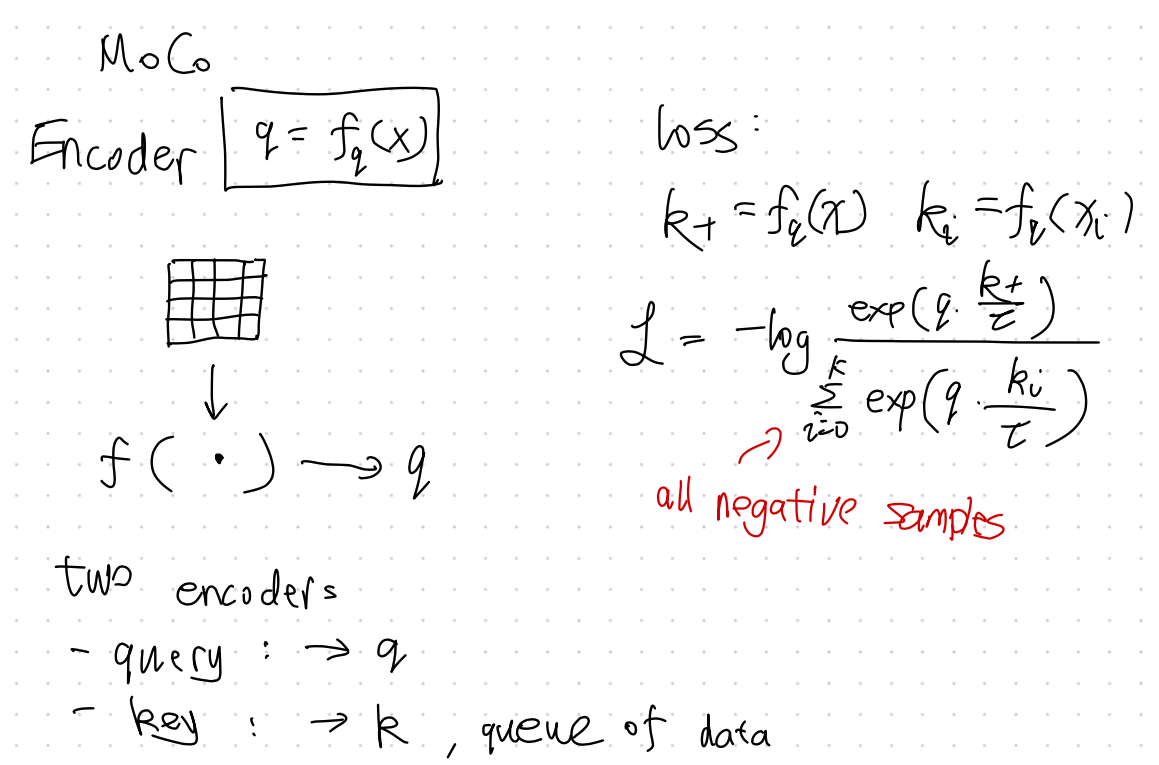 MoCo
Encoder q = f_q(x)
f ( · ) → q
two encoders
- query : → q
- key : → k , queue of data
loss :
k+ = f_q(x) k_i = f_q(x_i)
L = -log exp(q · k+/τ) / Σ_{i=0}^{K} exp(q · k_i/τ)
all negative samples